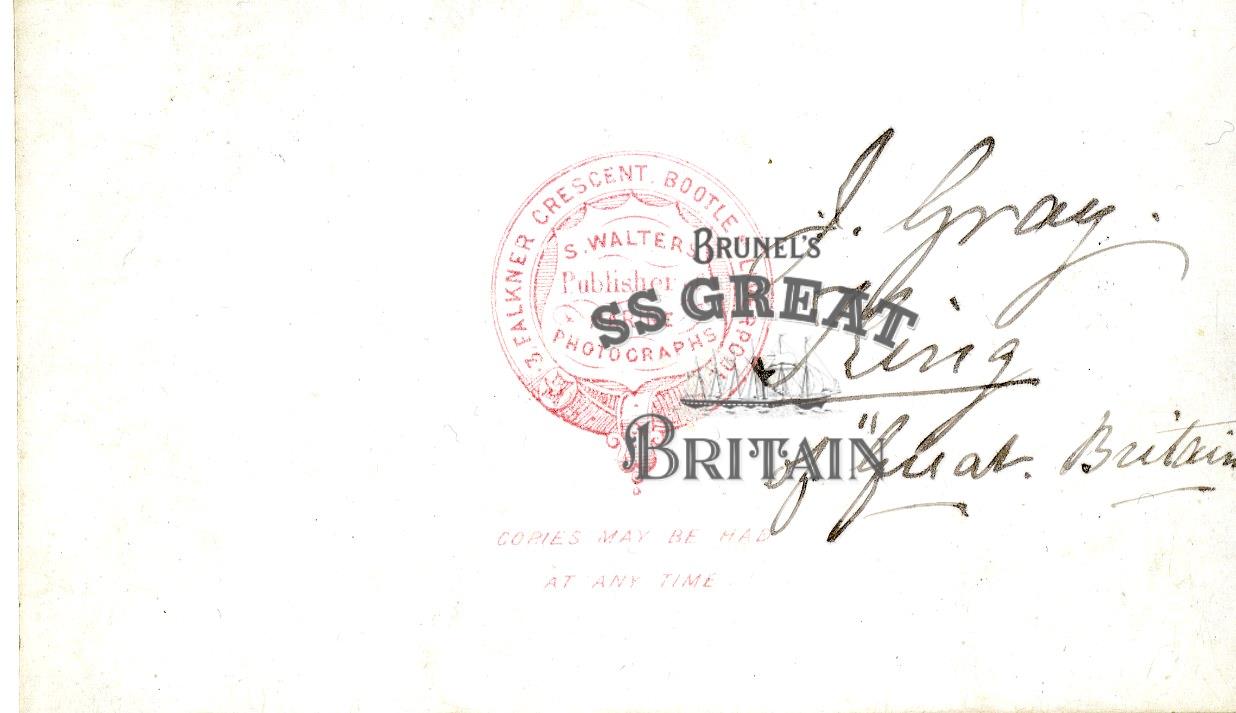 3 FALKNER CRESCENT. BOOTLE LIVERPOOL
S. WALTERS
Publisher of
MARINE
PHOTOGRAPHS
COPIES MAY BE HAD
AT ANY TIME
J. Gray.
King
of "Great. Britain
BRUNEL'S
SS GREAT
BRITAIN